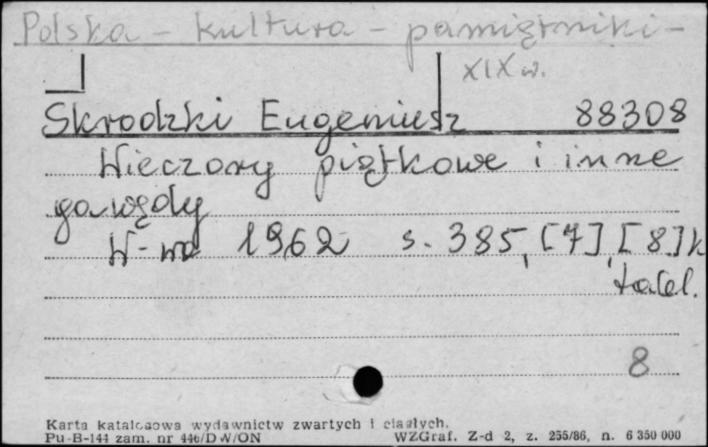 Polska - kultura - pamiętniki -
XIX w.
Skrodzki Eugeniusz 88308
Wieczory piątkowe i inne
gawędy
W-wa 1962 s. 385, [7], [8] k
tabl.
8
Karta katalogowa wydawnictw zwartych i ciągłych.
Pu-B-144 zam. nr 446/DW/ON WZGraf. Z-d 2, z. 255/86, n. 6 350 000